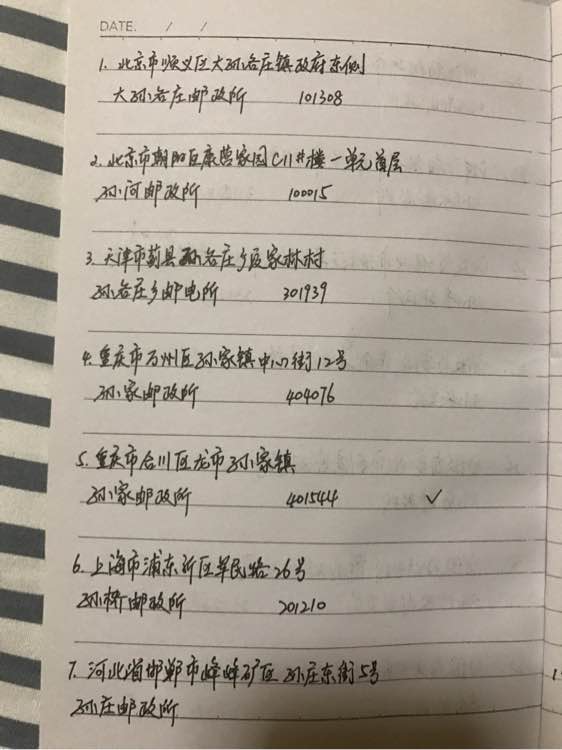 DATE. / /
1. 北京市顺义区大孙各庄镇政府东侧
大孙各庄邮政所 101308
2. 北京市朝阳区康营家园C11#楼一单元首层
孙河邮政所 100015
3. 天津市蓟县孙各庄乡区家林村
孙各庄乡邮电所 301939
4. 重庆市万州区孙家镇中心街12号
孙家邮政所 404076
5. 重庆市合川区龙市孙家镇
孙家邮政所 401544 ✓
6. 上海市浦东新区军民路26号
孙桥邮政所 201210
7. 河北省邯郸市峰峰矿区孙庄东街5号
孙庄邮政所